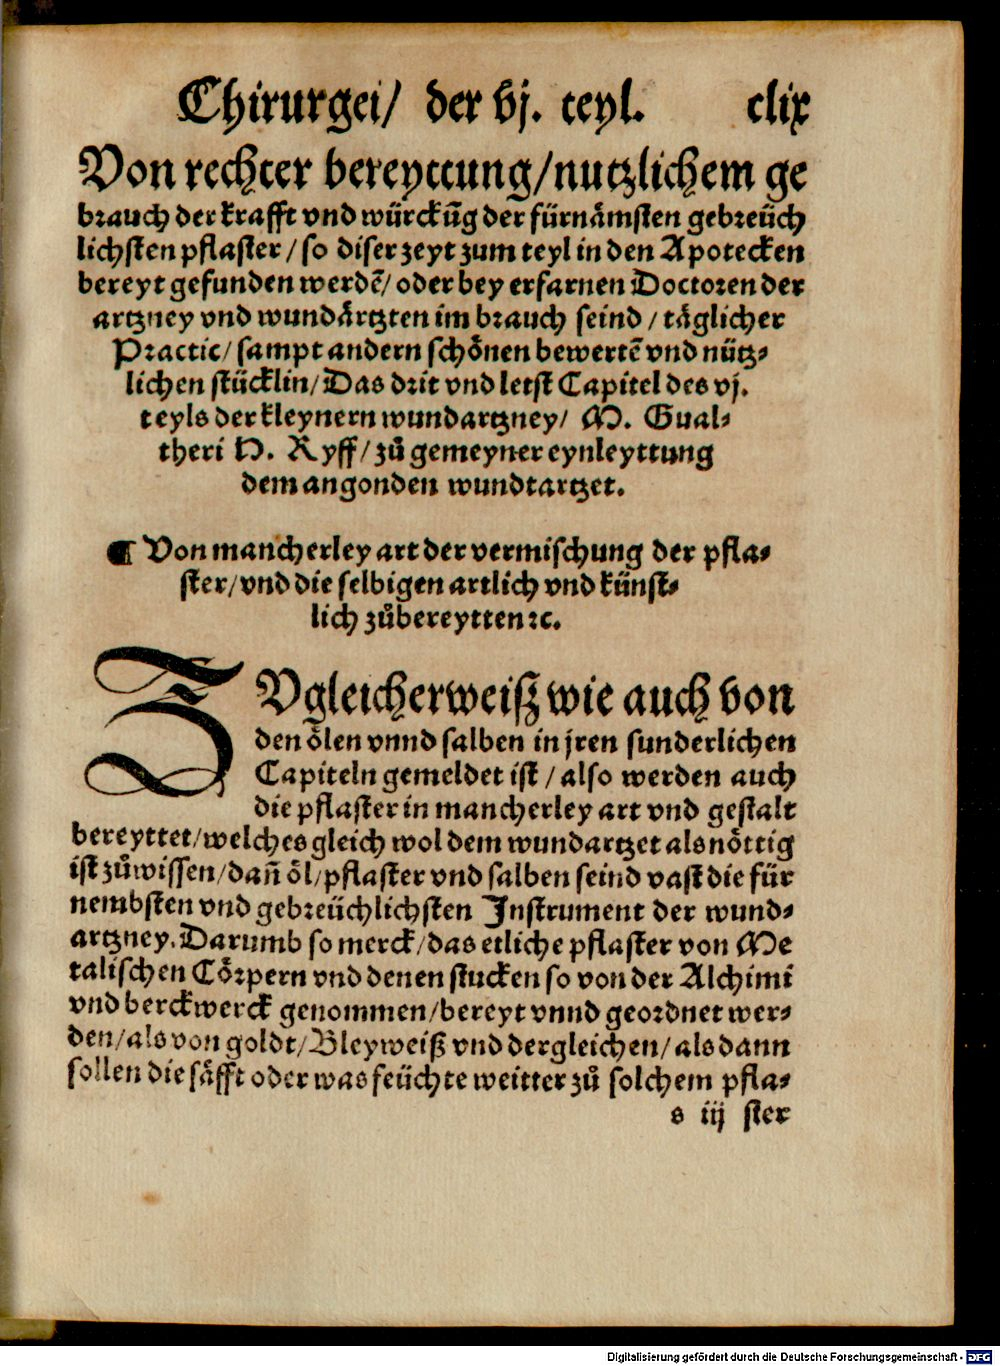 Chirurgei/ der vj. teyl. clix
Von rechter bereyttung/nutzlichem ge
brauch der krafft vnd würckūg der fürnämsten gebreüch
lichsten pflaster/so diser zeyt zum teyl in den Apotecken
bereyt gefunden werdē/oder bey erfarnen Doctoren der
artzney vnd wundärtzten im brauch seind/täglicher
Practic/sampt andern schönen bewertē vnd nütz⸗
lichen stücklin/Das drit vnd letst Capitel des vj.
teyls der kleynern wundartzney/ M. Gual⸗
theri H. Ryff/zů gemeyner eynleyttung
dem angonden wundtartzet.
¶ Von mancherley art der vermischung der pfla⸗
ster/vnd die selbigen artlich vnd künst⸗
lich zůbereytten ꝛc.
ZVgleicherweiß wie auch von
den ölen vnnd salben in jren sunderlichen
Capiteln gemeldet ist/also werden auch
die pflaster in mancherley art vnd gestalt
bereyttet/welches gleich wol dem wundartzet als nöttig
ist zůwissen/dañ öl/pflaster vnd salben seind vast die für
nembsten vnd gebreüchlichsten Instrument der wund⸗
artzney. Darumb so merck/das etliche pflaster von Me
talischen Cörpern vnd denen stucken so von der Alchimi
vnd berckwerck genommen/bereyt vnnd geordnet wer⸗
den/als von goldt/Bleyweiß vnd dergleichen/als dann
sollen die säfft oder was feüchte weitter zů solchem pfla⸗
s iij ster
Digitalisierung gefördert durch die Deutsche Forschungsgemeinschaft - DFG